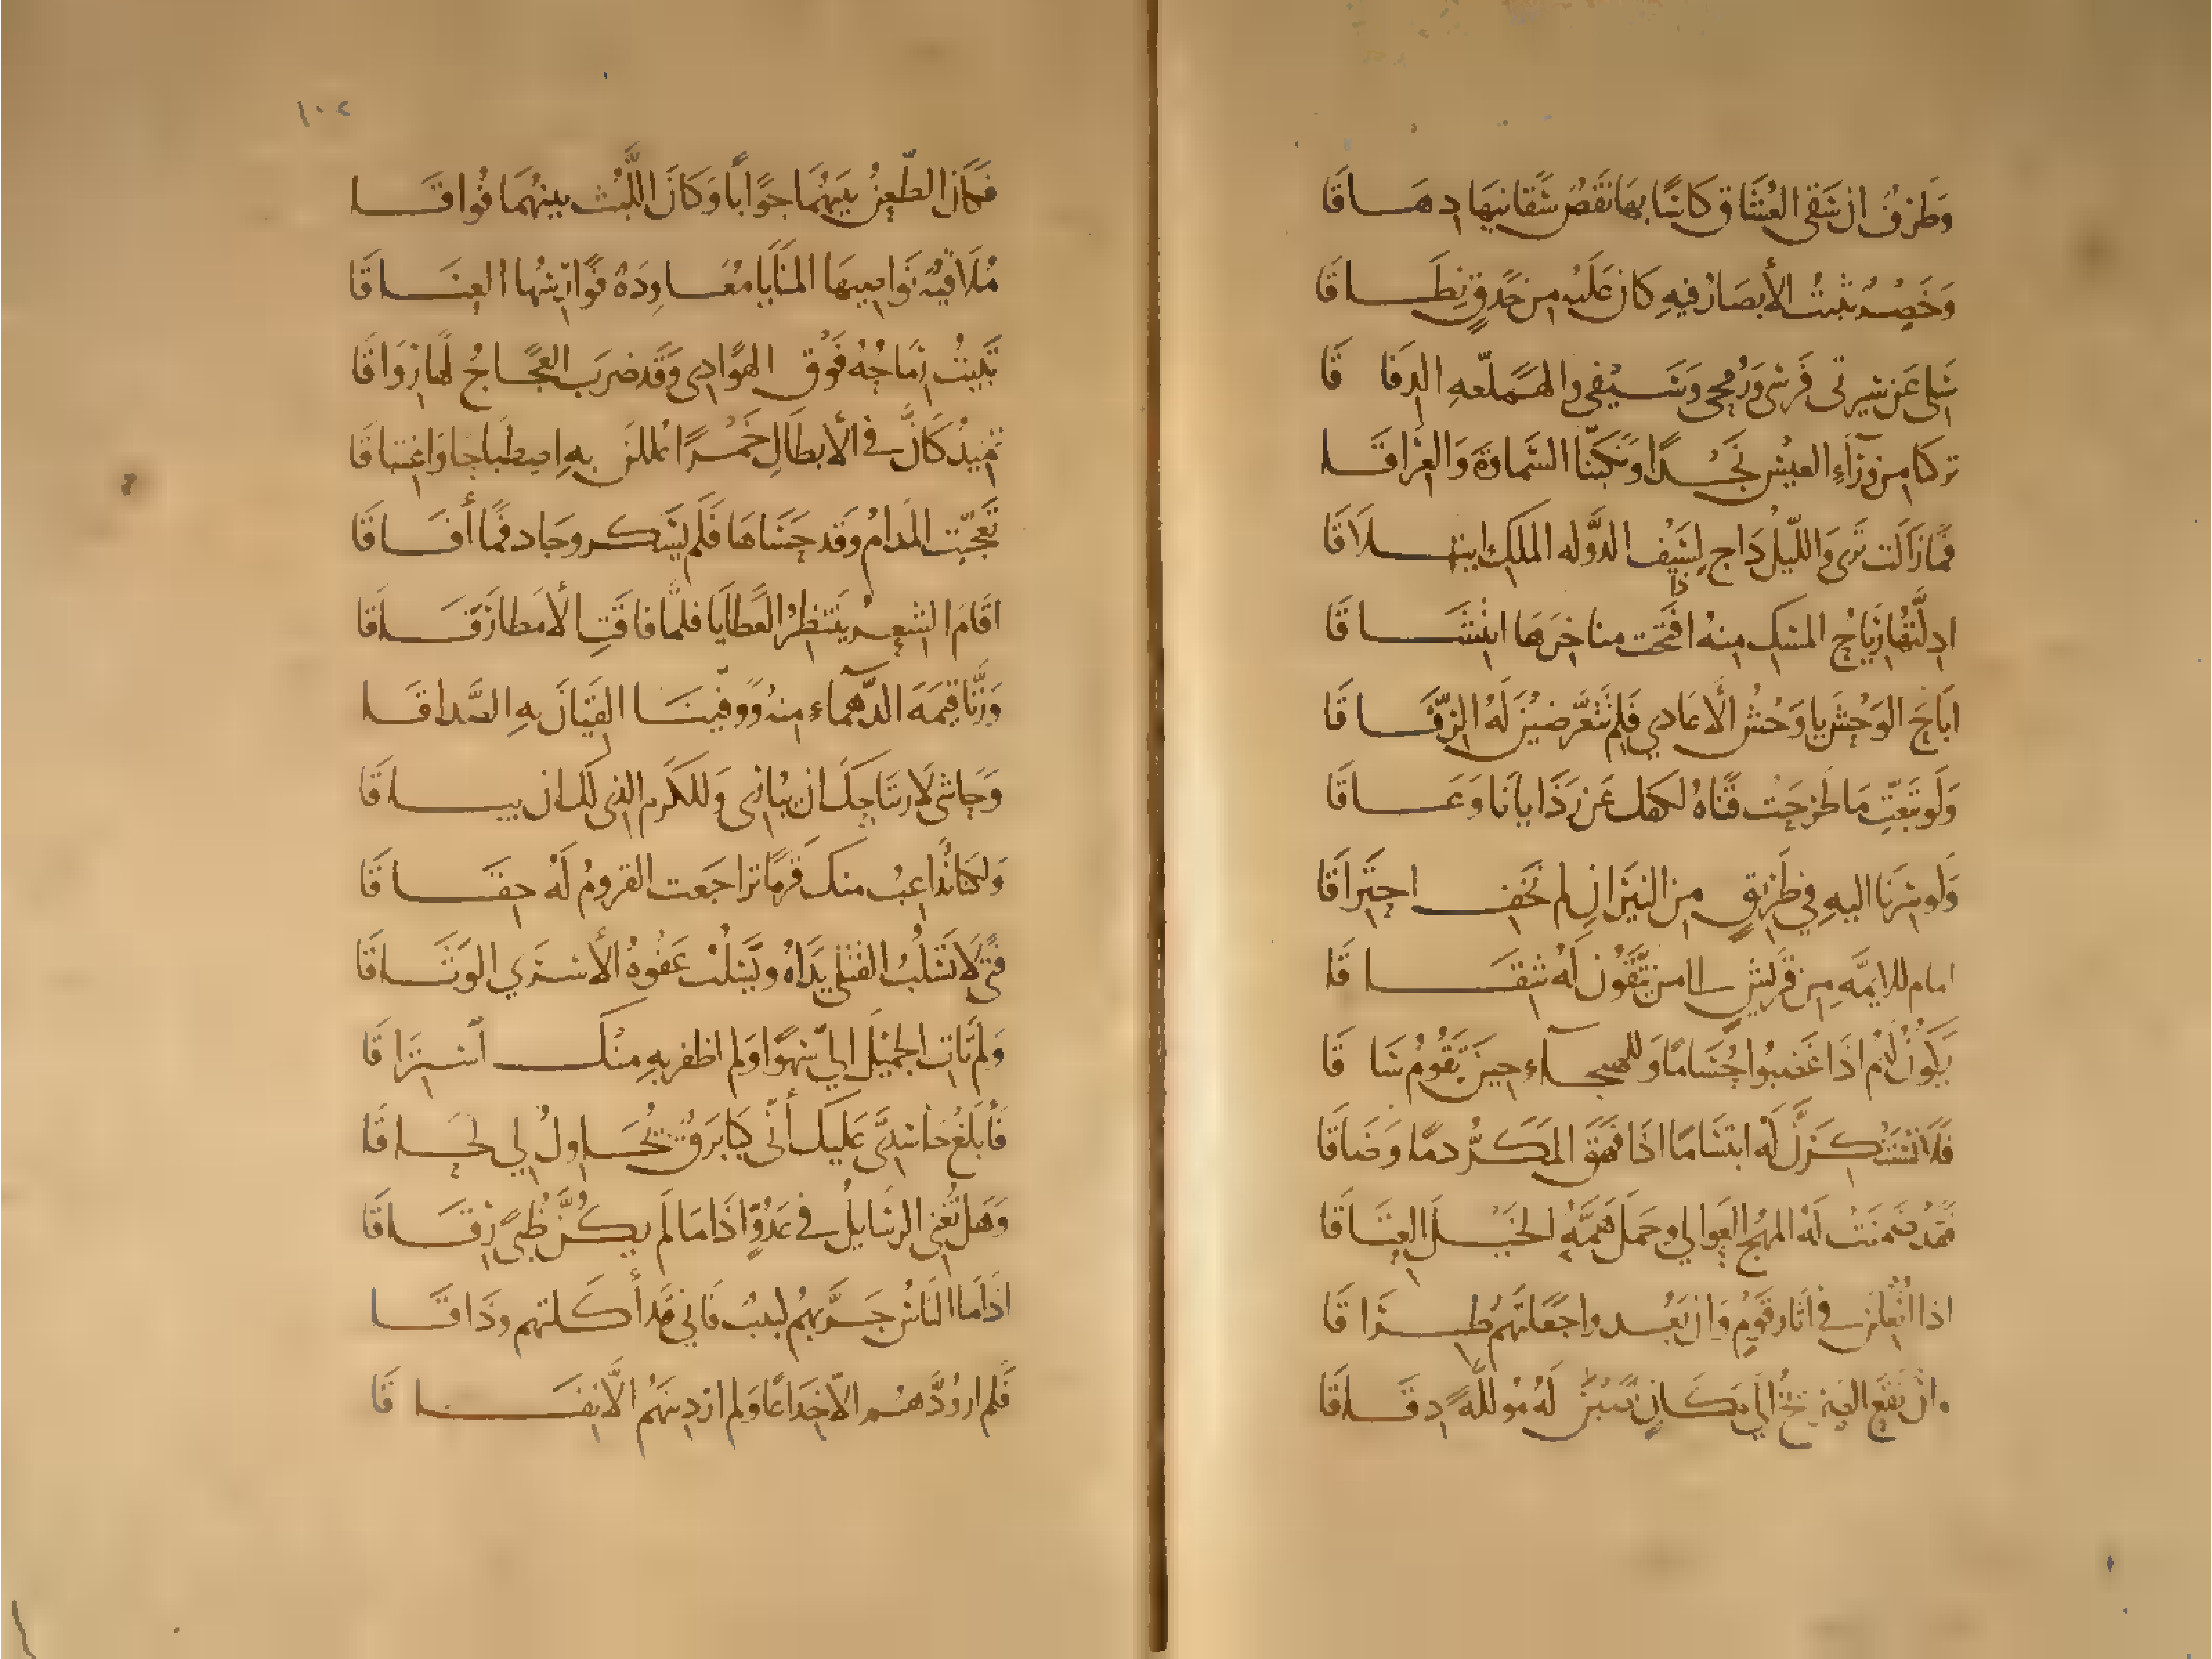 وَطَرْفٌ ان سَقى العُشّاق كَاسًا بهَا نَقصٌ سَقانيهَا دِهَاقَا
وَخَصْرٌ تثبتُ الأَبصَارُ فيهِ كَان عَلَيْه من حَدقٍ نِطَاقَا
سَلى عَن سيرتى فَرسى وَرُمحى وَسَيْفى والهَملّعه الدِفَاقَا
تركنا من وَرَآءِ العيْس نَجْدًا وَنَكّبنا السَّماوَة وَالعِرَاقَا
فمَا زَالَت تَرى وَاللّيْلُ دَاج لِسَيْف الدَّوله الملك ايتلَاقَا
ادِلَّتُهَا رِيَاحُ المسْك مِنهُ اذا فَتحَت مناخرَهَا انتِشَاقَا
ابَاحَ الوَحْشَ يا وَحْشُ الأَعَادي فَلِم تَتَعَرَّضيْنَ لَهُ الرِّفَاقَا
وَلَو تَبَعْتِ مَا طَرحَت قَنَاهُ لكفك عَن رَذَايانَا وَعَاقَا
وَلَو سِرْنَا اليهِ فِي طَرِيقٍ مِن النيْرَانِ لم نَخَف احتِرَاقَا
امام للايمَّهِ مِن قُرَيشٍ الا من يَتَّقُونَ لَهُ شِقَاقَا
يَكُونُ لَهُمْ اذَا غَضبُوا حُسَامًا وَللهيجآء حِيَن تَقُومُ سَاقَا
فَلَا تَسْتَنْكِرَنَّ لَهُ ابتسَامًا اذَا فَهقَ المَكَرُّ دمًا وَضَاقَا
فَقَدْ ضَمنَتْ لَهُ المهَجَ العَوالي وحَمل هَمَّهُ الخَيْلَ العِتَاقَا
اذا انْعِلْنَ في اثَار قَوْمٍ وَان بَعُدوا جَعَلنَهُم طِرَاقَا
وان نَقَعَ الصَّريخُ الَى مَكَانٍ نَصَبْنَ لَهُ مُؤللَّهً دِقَاقَا
١٠٢
فَكَان الطّعنُ بيَنهُمَا جَوَابًا وَكَانَ اللَّبْثُ بينهُمَا فُوَاقَا
مُلَاقيَهً نَوَاصيهَا المنَايَا مُعَاوِدَهً فَوَارِسُهَا العِنَاقَا
تَبيتُ رِمَاحُهُ فَوْق الهَوَادِى وَقَد ضرَب العَجَاجُ لهَا رِوَاقَا
تَميْدُ كَانَّ في الأَبطَالِ خَمْرًا عُللنَ بهِ اصِطبَاحًا وَاغتبَاقَا
تَعجَّبَت المَدامُ وَقَد حَسَاهَا فَلَم يَسْكَر وجَاد فمَا أَفَاقَا
اقَامَ الشعرُ يَنتَظِرُ العَطَايَا فلمَّا فاقَتِ الأَمطارَ فَاقَا
وَزَنَّا قيمَهَ الدّهمآء مِنهُ وَوَفّينَا القيَانَ بهِ الصَّدَاقَا
وَحَاشى لارتيَاحِكَ ان يُبَارى وَللكَرم الذى لكَ ان يُبَاقَا
وَلكنَّا نُدَاعِبُ منكَ قَرمًا تَرَاجَعت القرومُ لَهُ حِقَاقَا
فَتًى لَا تَسْلُبُ القَتلى يَدَاهُ وَيَسْلُبْ عَفوهُ الأَسْرَي الوَثَاقَا
وَلم تَات الجميْلَ اليّ سَهْوًا وَلم اظفر بهِ مِنْكَ اسْتِرَاقَا
فَأَبلغْ حَاسِدِىَّ عَلَيكَ أَنّى كبَا بَرقٌ يُحَاولُ لي لحَاقَا
وَهَل تُغني الرسَايلُ في عَدُوٍّ اذَا مَا لَم يَكُنَّ ظُبًى رِقَاقَا
اذَا مَا النَاسُ جَرَّبَهُم لبيبُ فَانى قَد أَكَلتهم وذَاقَا
فَلم ار وُدَّهُم الّا خِدَاعًا وَلم ار دِينَهُم الَّا نِفَاقَا